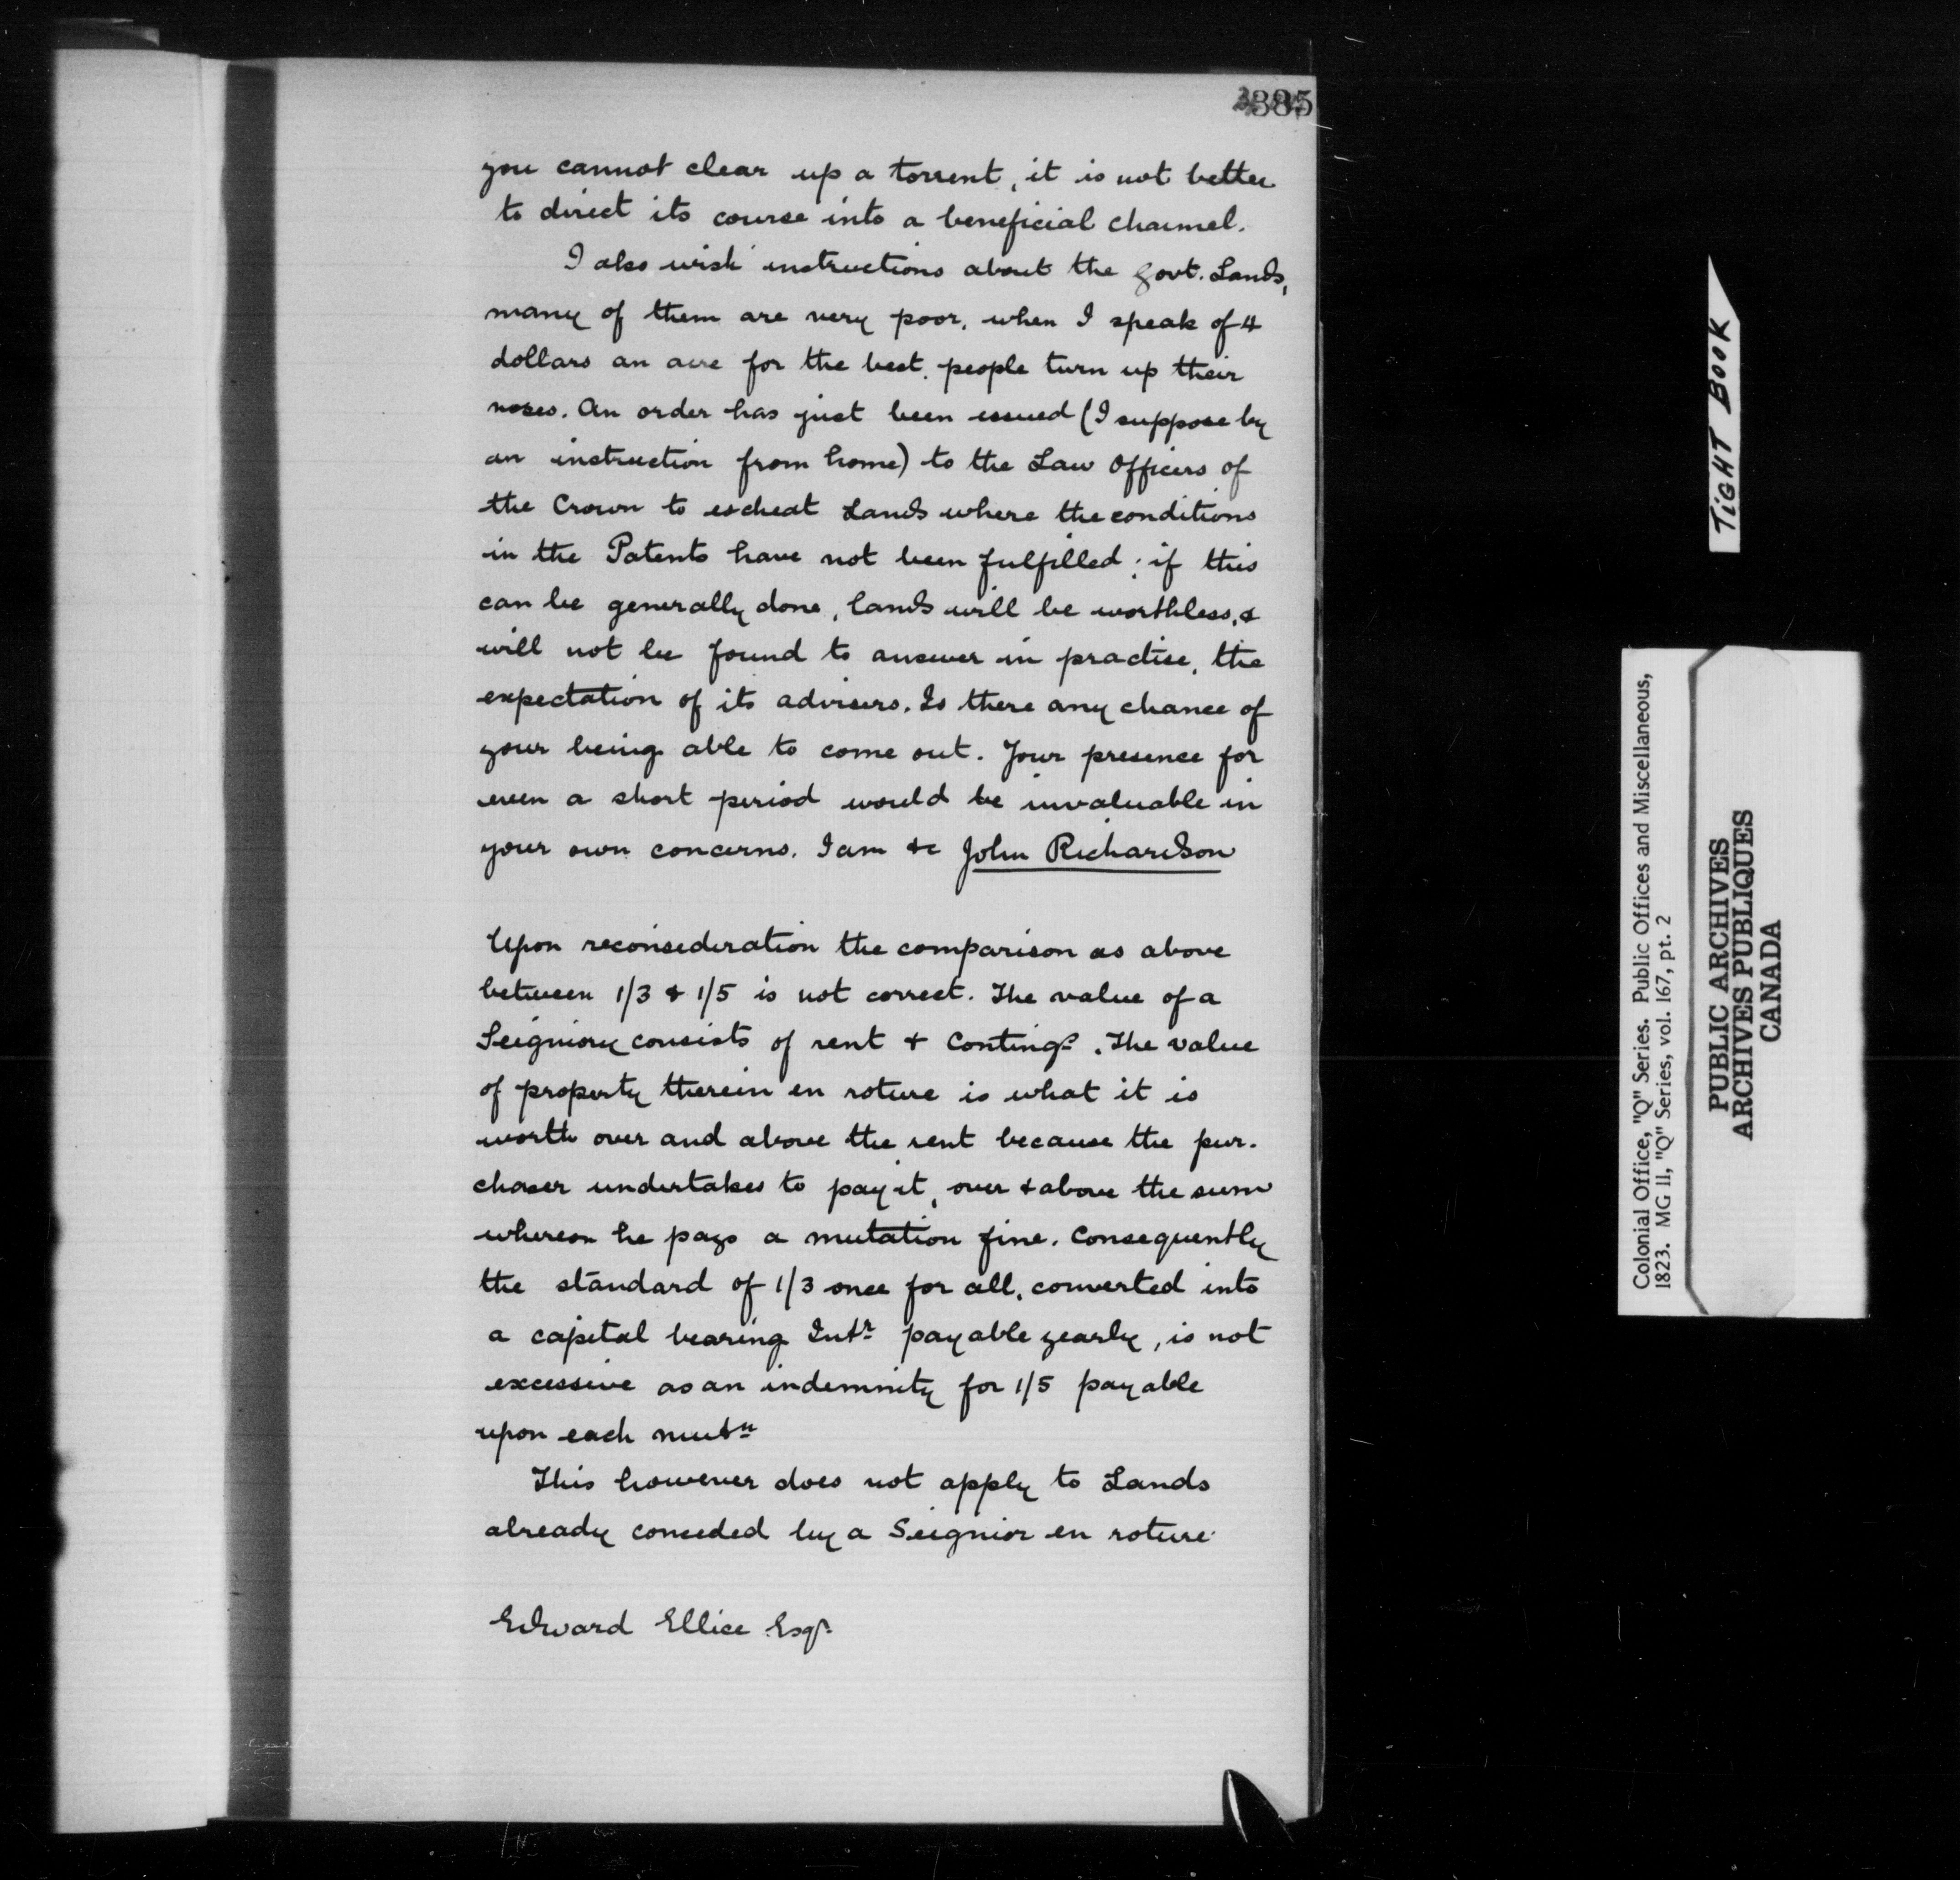 385
you cannot clear up a torrent, it is not better
to direct its course into a beneficial channel.
I also wish instructions about the Govt. Lands,
many of them are very poor, when I speak of 4
dollars an acre for the best, people turn up their
noses. An order has just been issued (I suppose by
an instruction from home) to the Law Officers of
the Crown to escheat Lands where the conditions
in the Patents have not been fulfilled; if this
can be generally done, lands will be worthless, &
will not be found to answer in practise, the
expectation of its advisers. Is there any chance of
your being able to come out. Your presence for
even a short period would be invaluable in
your own concerns. I am &c John Richardson
Upon reconsideration the comparison as above
between 1/3 & 1/5 is not correct. The value of a
Seigniory consists of rent + Conting.s. The value
of property therein en roture is what it is
worth over and above the rent because the pur-
chaser undertakes to pay it, over & above the sum
whereon he pays a mutation fine. Consequently
the standard of 1/3 once for all, converted into
a capital bearing Intt payable yearly, is not
excessive as an indemnity for 1/5 payable
upon each mutn
This however does not apply to Lands
already conceded by a Seignior en roture
Edward Ellice Esqr.
TIGHT BOOK
Colonial Office, "Q" Series. Public Offices and Miscellaneous,
1823. MG 11, "Q" Series, vol. 167, pt. 2
PUBLIC ARCHIVES
ARCHIVES PUBLIQUES
CANADA